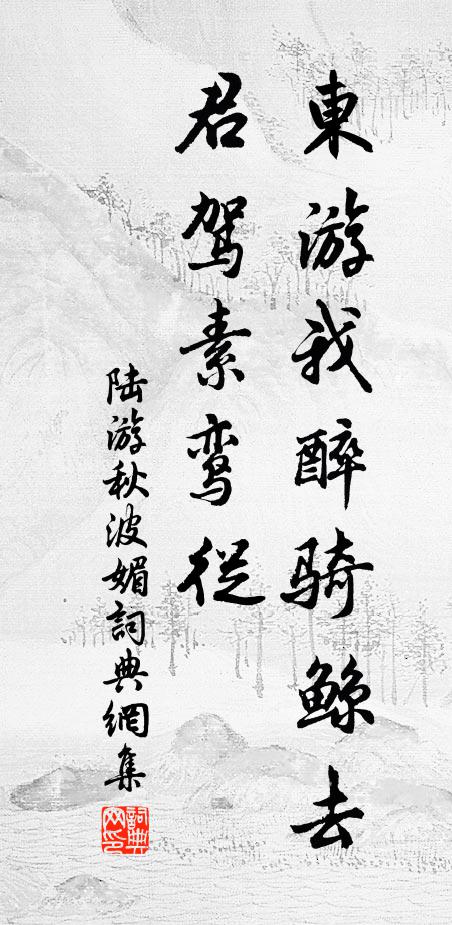 東游我醉骑鲸去
君驾素鸾從
陆游秋波媚詞典網集
詞典
网印